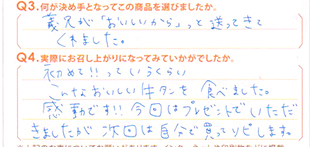 Q3.何が決め手となってこの商品を選びましたか。
義兄が「おいしいから」っと送ってきて
くれました。
Q4.実際にお召し上がりになってみていかがでしたか。
初めて!!っていうくらい
こんなおいしい牛タンを食べました。
感動です!!今回はプレゼントでいただ
きましたが次回は自分で買ってリピします。